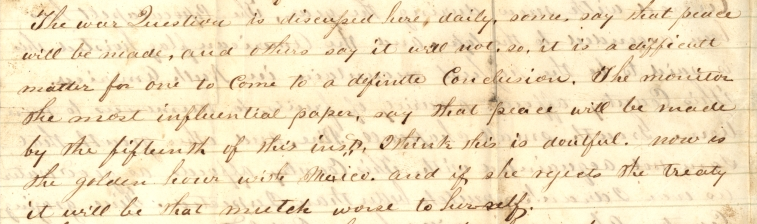 The war Question is discussed here, daily, some, say that peace
will be made, and others say it will not. so, it is a difficult
matter for one to come to a definite Conclusion. The monitor
the most influential paper, say that peace will be made
by the fifteenth of this inst, I think this is doutful. now is
the golden hour with Mexico. and if she rejects the treaty
it will be that mutch worse to her self.